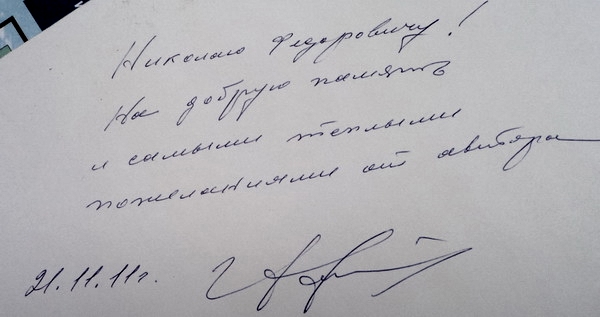 Николаю Федоровичу!
На добрую память
и самыми теплыми
пожеланиями от автора
21.11.11г.